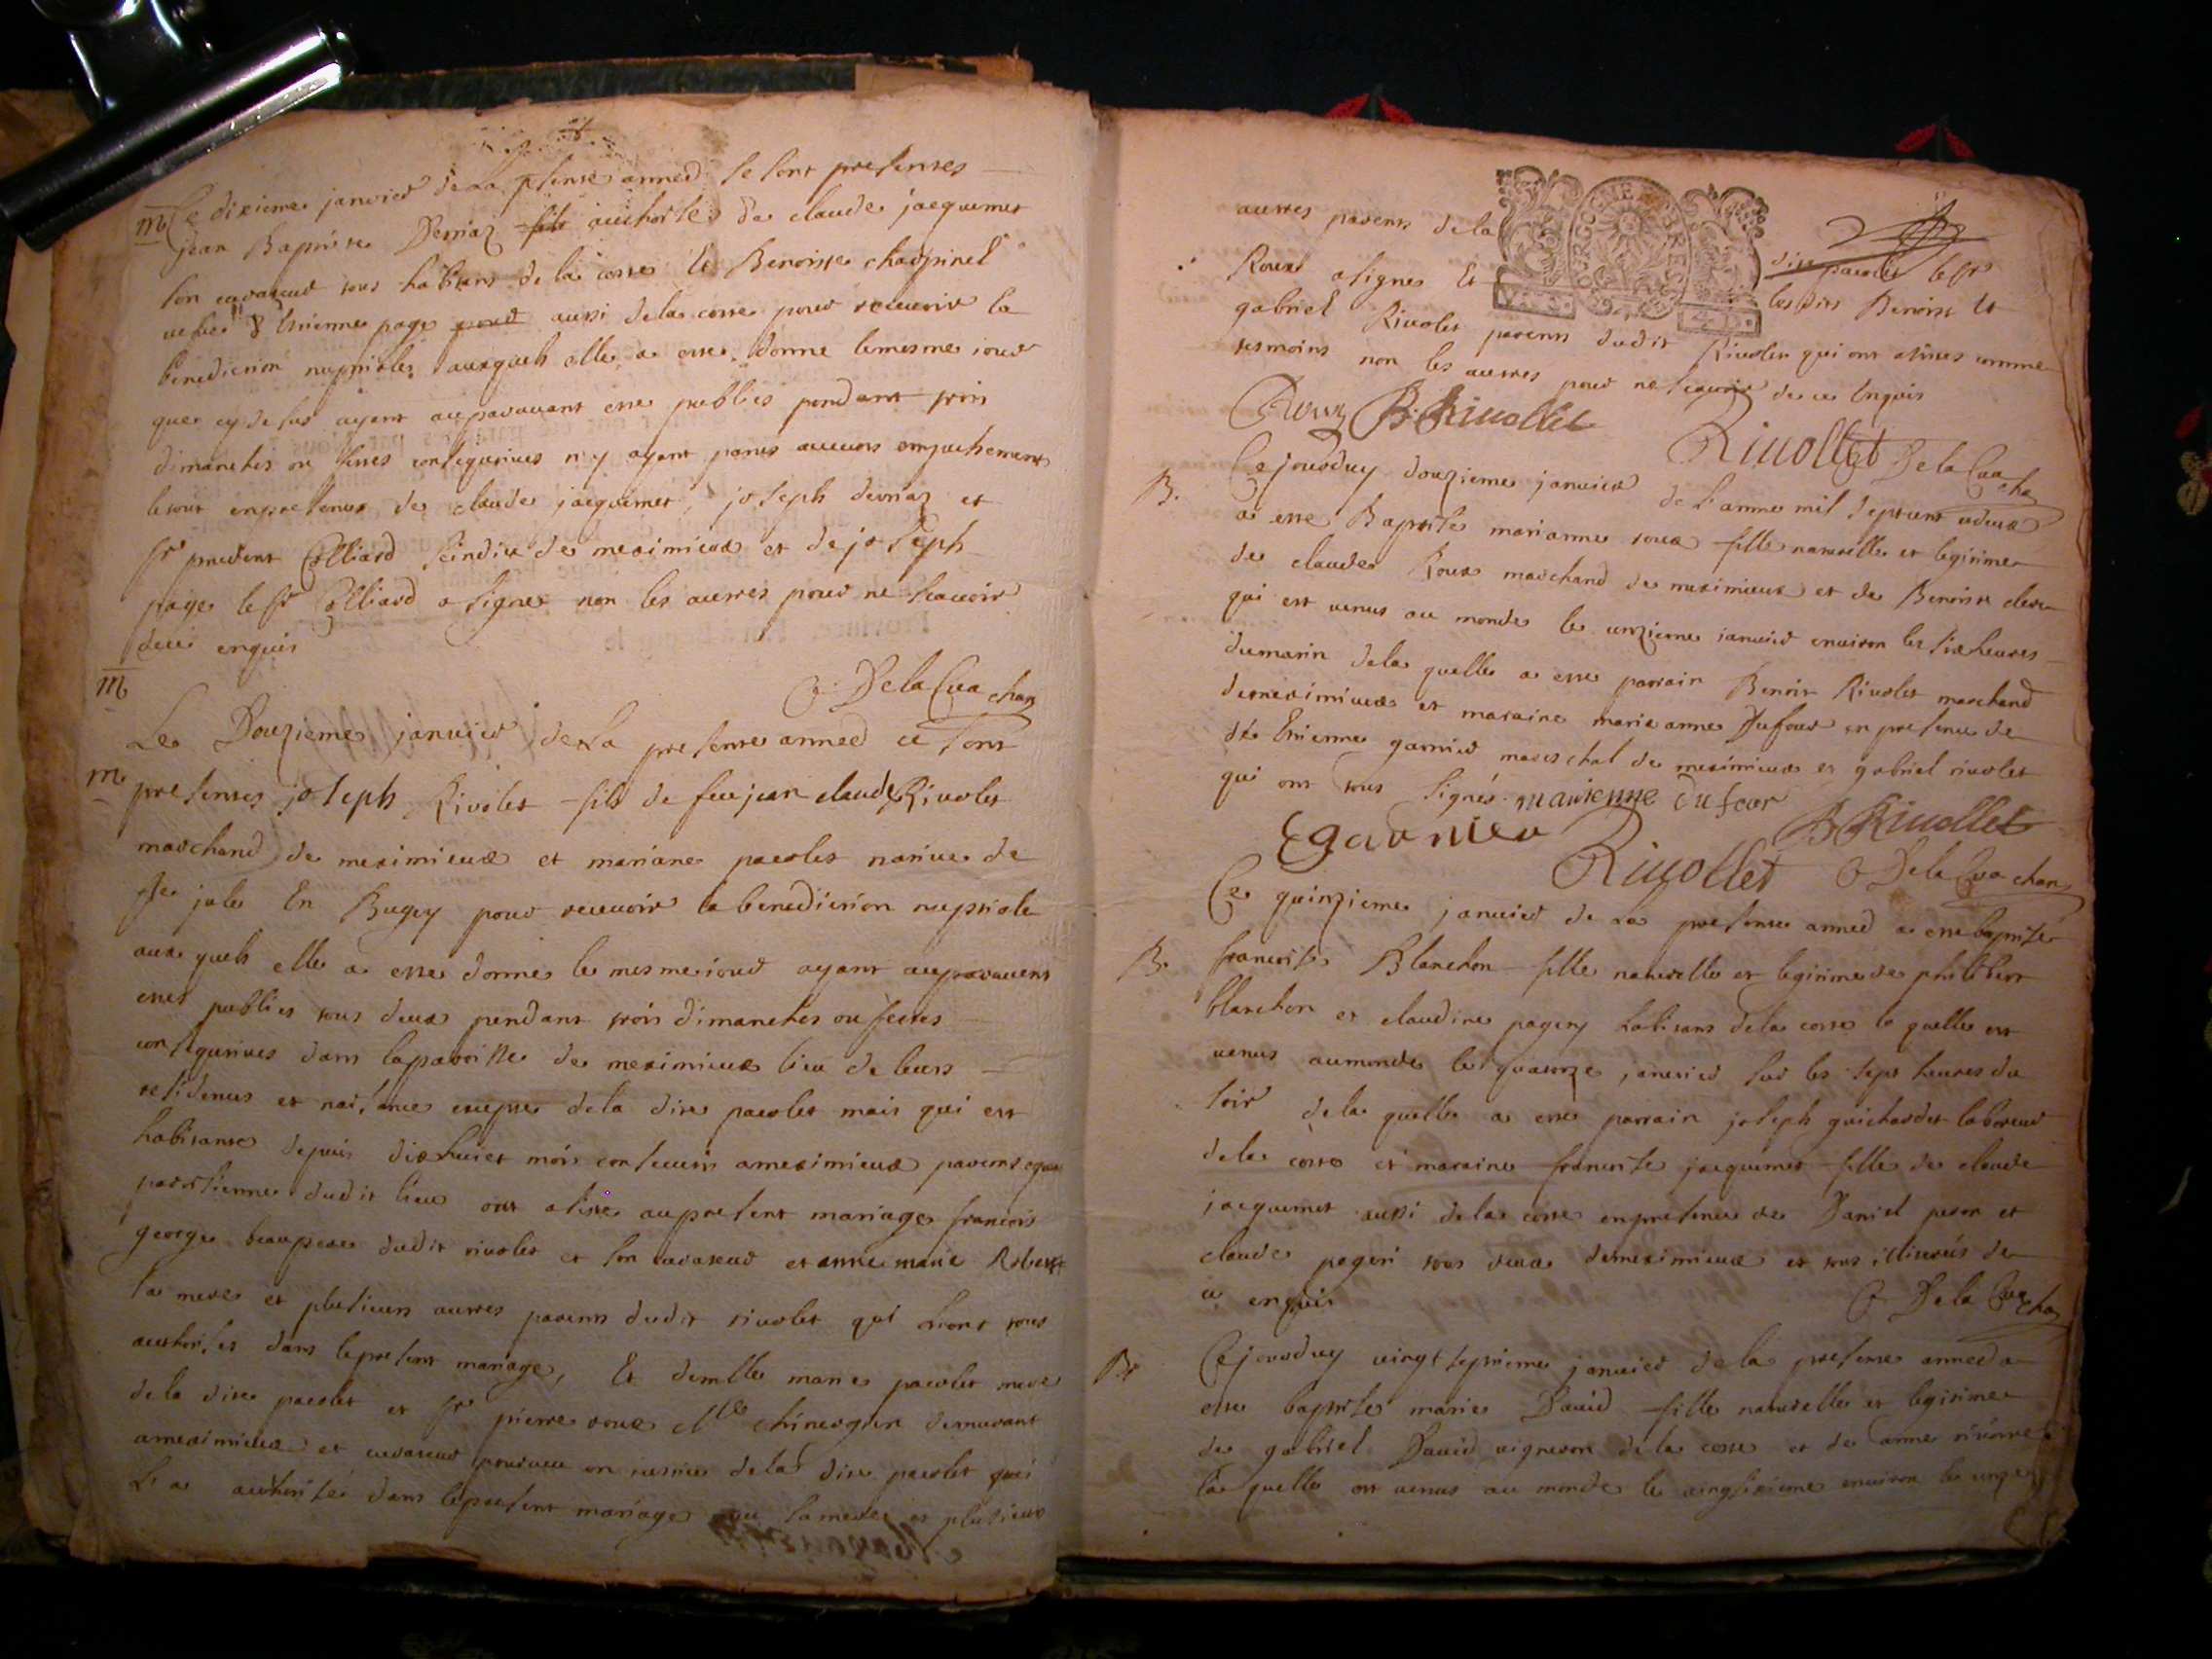 M Le dixieme janvier de la p̃sente anneé se sont presentes
jean Baptiste Derriaz fils authorisé de claude jacquemet
son curateur tous habitans de la coste Et Benoiste
vefve d'Estienne page pour aussi de la coste pour recevoir la
benediction nuptiale auxquels elle a esté donné le mesme jour
que cy desus ayant auparavant esté publiés pendant trois
dimanches ou festes consequtives n'y ayant parus aucuns empechement
le tout en presence de claude jacquemet, joseph derriaz et
sr prudent Colliard sindic de meximieux et de joseph
page le sr Colliard a signé non les autres pour ne scavoir
de ce enquis
M
Le Douzieme janvier de La presente anneé ce sont
m presentes joseph Rivolet fils de feu jean claude Rivolet
marchand de meximieux et mariane pacolet native de
St jale En Bugey pour recevoir la benediction nuptiale
aux quels elle a esté donné le mesme jour ayant auparavent
estés publiés tous deux pendant trois dimanches ou festes
consequtives dans la paroisse de meximieux lieu de leurs
residences et naisance excepte de la dite pacolet mais qui est
habitante depuis dix huict mois consecutifs a meximieux parents
paroissienne dudit lieu ont assisté au present mariage francois
george beaupere dudit rivolet et son curateur et anne marie Robert
sa mere et plusieurs autres parents dudit rivolet qui l'ont tous
authorisés dans le present mariage, Et demlle marie pacolet mere
de la dite pacolet et sr pierre roux chirurgien demeurant
a meximieux et curateur pourveu en justice de la dite pacolet qui
L'a authorisé dans le present mariage avec sa mere et plusieurs
autres parents de la dite pacolet le sr
Roux a signé Et les dits Benoist Et
gabriel Rivolet parents dudit Rivolet qui ont assistés comme
tesmoins non les autres pour ne scavoir de ce Enquis
Roux B. Rivollet
Rivollet
B. Ce jourduy douzieme janvier de l'anne mil sept cent
a esté Baptisée marianne roux fille naturelle et legitime
de claude Roux marchand de meximieux et de Benoiste
qui est venue au monde le unzieme janvier environ les six heures
du matin de la quelle a esté parrain Benoit Rivolet marchand
de meximieux et maraine marie anne Dufour en presence de
Estienne garnier mareschal de meximieux et gabriel rivolet
qui ont tous signés. marienne Dufour
Egarnier B Rivollet
Rivollet
Ce quinzieme janvier de La presente anneé a esté baptisé
B. francoise Blanchon fille naturelle et legitime de philibert
blanchon et claudine pagery habitans de la coste la quelle est
venue au monde le quatorze janvier sur les sept heures du
soir de la quelle a esté parrain joseph guichardet laboreur
de la coste et maraine francoise jacquemet fille de claude
jacquemet aussi de la coste en presence de Daniel peron et
claude pageri tous deux de meximieux et tous illiterés de
ce enquis
B Ce jourduy vingt septieme janvier de la presente anneé a
esté baptisé marie David fille naturelle et legitime
de gabriel David vigneron de la coste et de anne
la quelle est venue au monde le vingt sixieme environ les unze